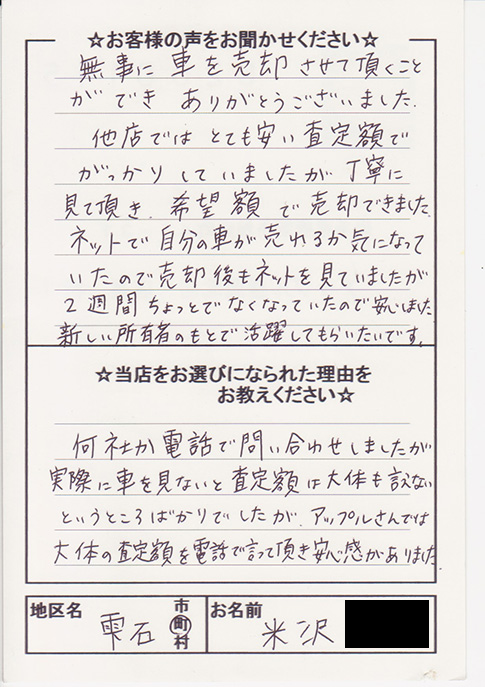 ☆お客様の声をお聞かせください☆
無事に車を売却させて頂くこと
ができ ありがとうございました.
他店では とても安い査定額で
がっかりしていましたが丁寧に
見て頂き、希望額で売却できました.
ネットで自分の車が売れるか気になって
いたので売却後もネットを見ていましたが
2週間ちょっとでなくなっていたので安心しました
新しい所有者のもとで活躍してもらいたいです。
☆当店をお選びになられた理由を
お教えください☆
何社か電話で問い合わせしましたが
実際に車を見ないと査定額は大体も言えない
というところばかりでしたが、アップルさんでは
大体の査定額を電話で言って頂き安心感がありました
地区名 雫石 市町村 お名前 米沢